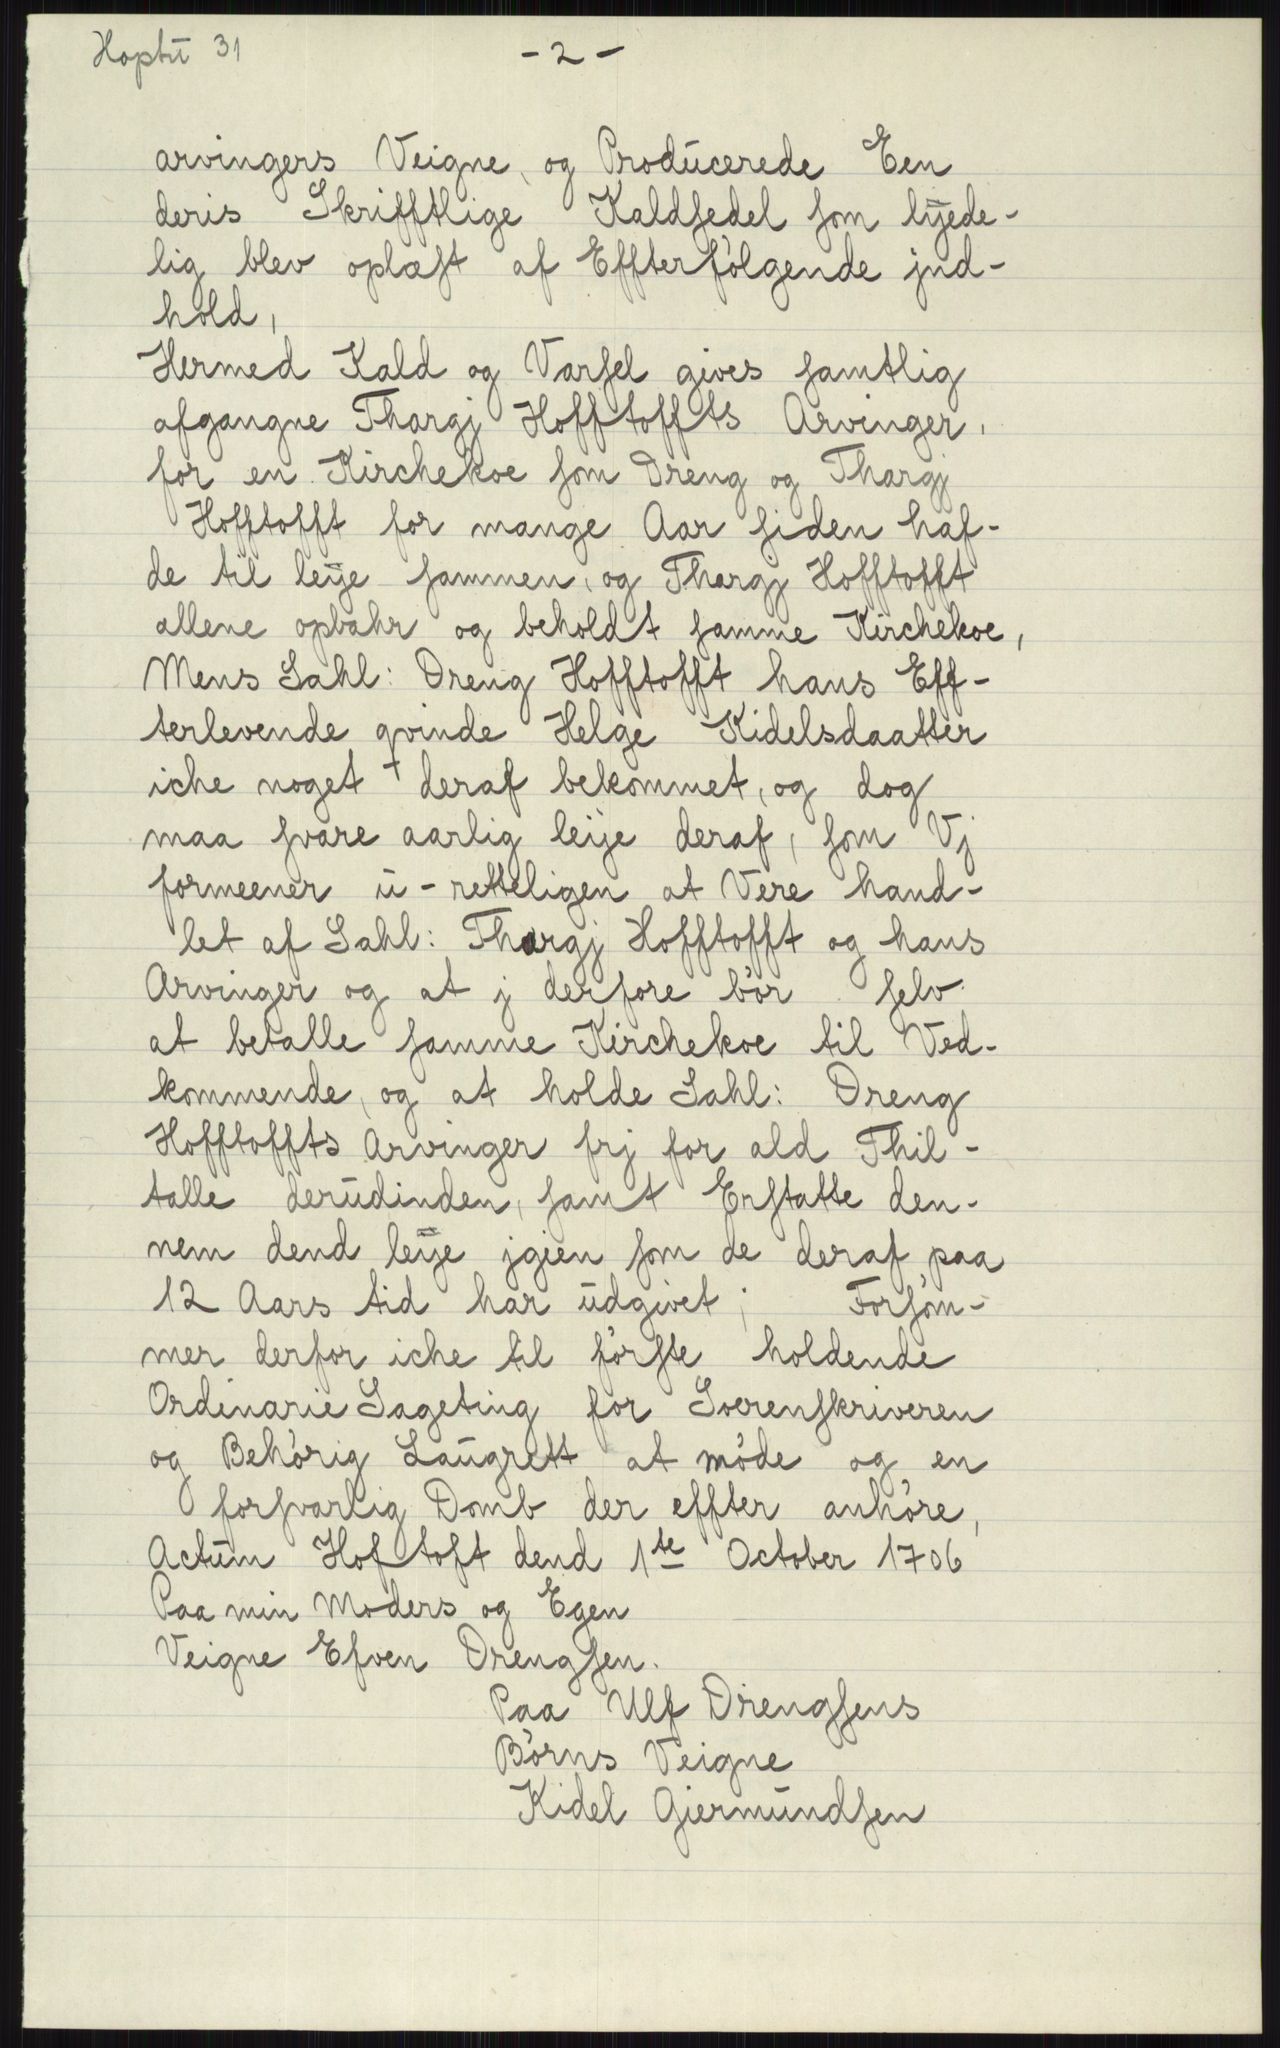 Hoptū 31
- 2 -
arvingers Veigne, og Prodūcerede Een
deris Skrifftlige Kaldsedel som lÿede-
lig blev oplæst af Effterfølgende jnd-
hold,
Hermed Kald og Varsel gives samtlig
afgangne Thargj Hofftoffts Arvinger,
for en Kirchekoe som Dreng og Thargj
Hofftofft for mange Aar siden haf-
de til leÿe sammen, og Thargj Hofftofft
allene opbahr og beholdt samme Kirchekoe,
Mens Sahl: Dreng Hofftofft hans Eff-
terlevende qvinde Helge Kidelsdaatter
iche noget + deraf bekommet, og dog
maa svare aarlig leije deraf, som Vj
formeener ū-retteligen at Vere hand-
let af Sahl: Thargj Hofftofft og hans
Arvinger og at j derfore bør selv
at betalle samme Kirchekoe til Ved-
kommende, og at holde Sahl: Dreng
Hofftoffts Arvinger frj for ald Thil-
talle derūdinden, samt Erstatte den-
nem dend leÿe jgien som de deraf paa
12 Aars tid har ūdgivet; Forsøm-
mer derfor iche til første holdende
Ordinarie Sageting for Soerenskriveren
og Behørig Laūgrett at møde og en
forsvarlig Domb der effter anhøre,
Actūm Hoftoft dend 1te October 1706
Paa min Moders og Egen
Veigne Efven Drengsen.
Paa Ulf Drengsens
Børns Veigne
Kidel Giermūndsen